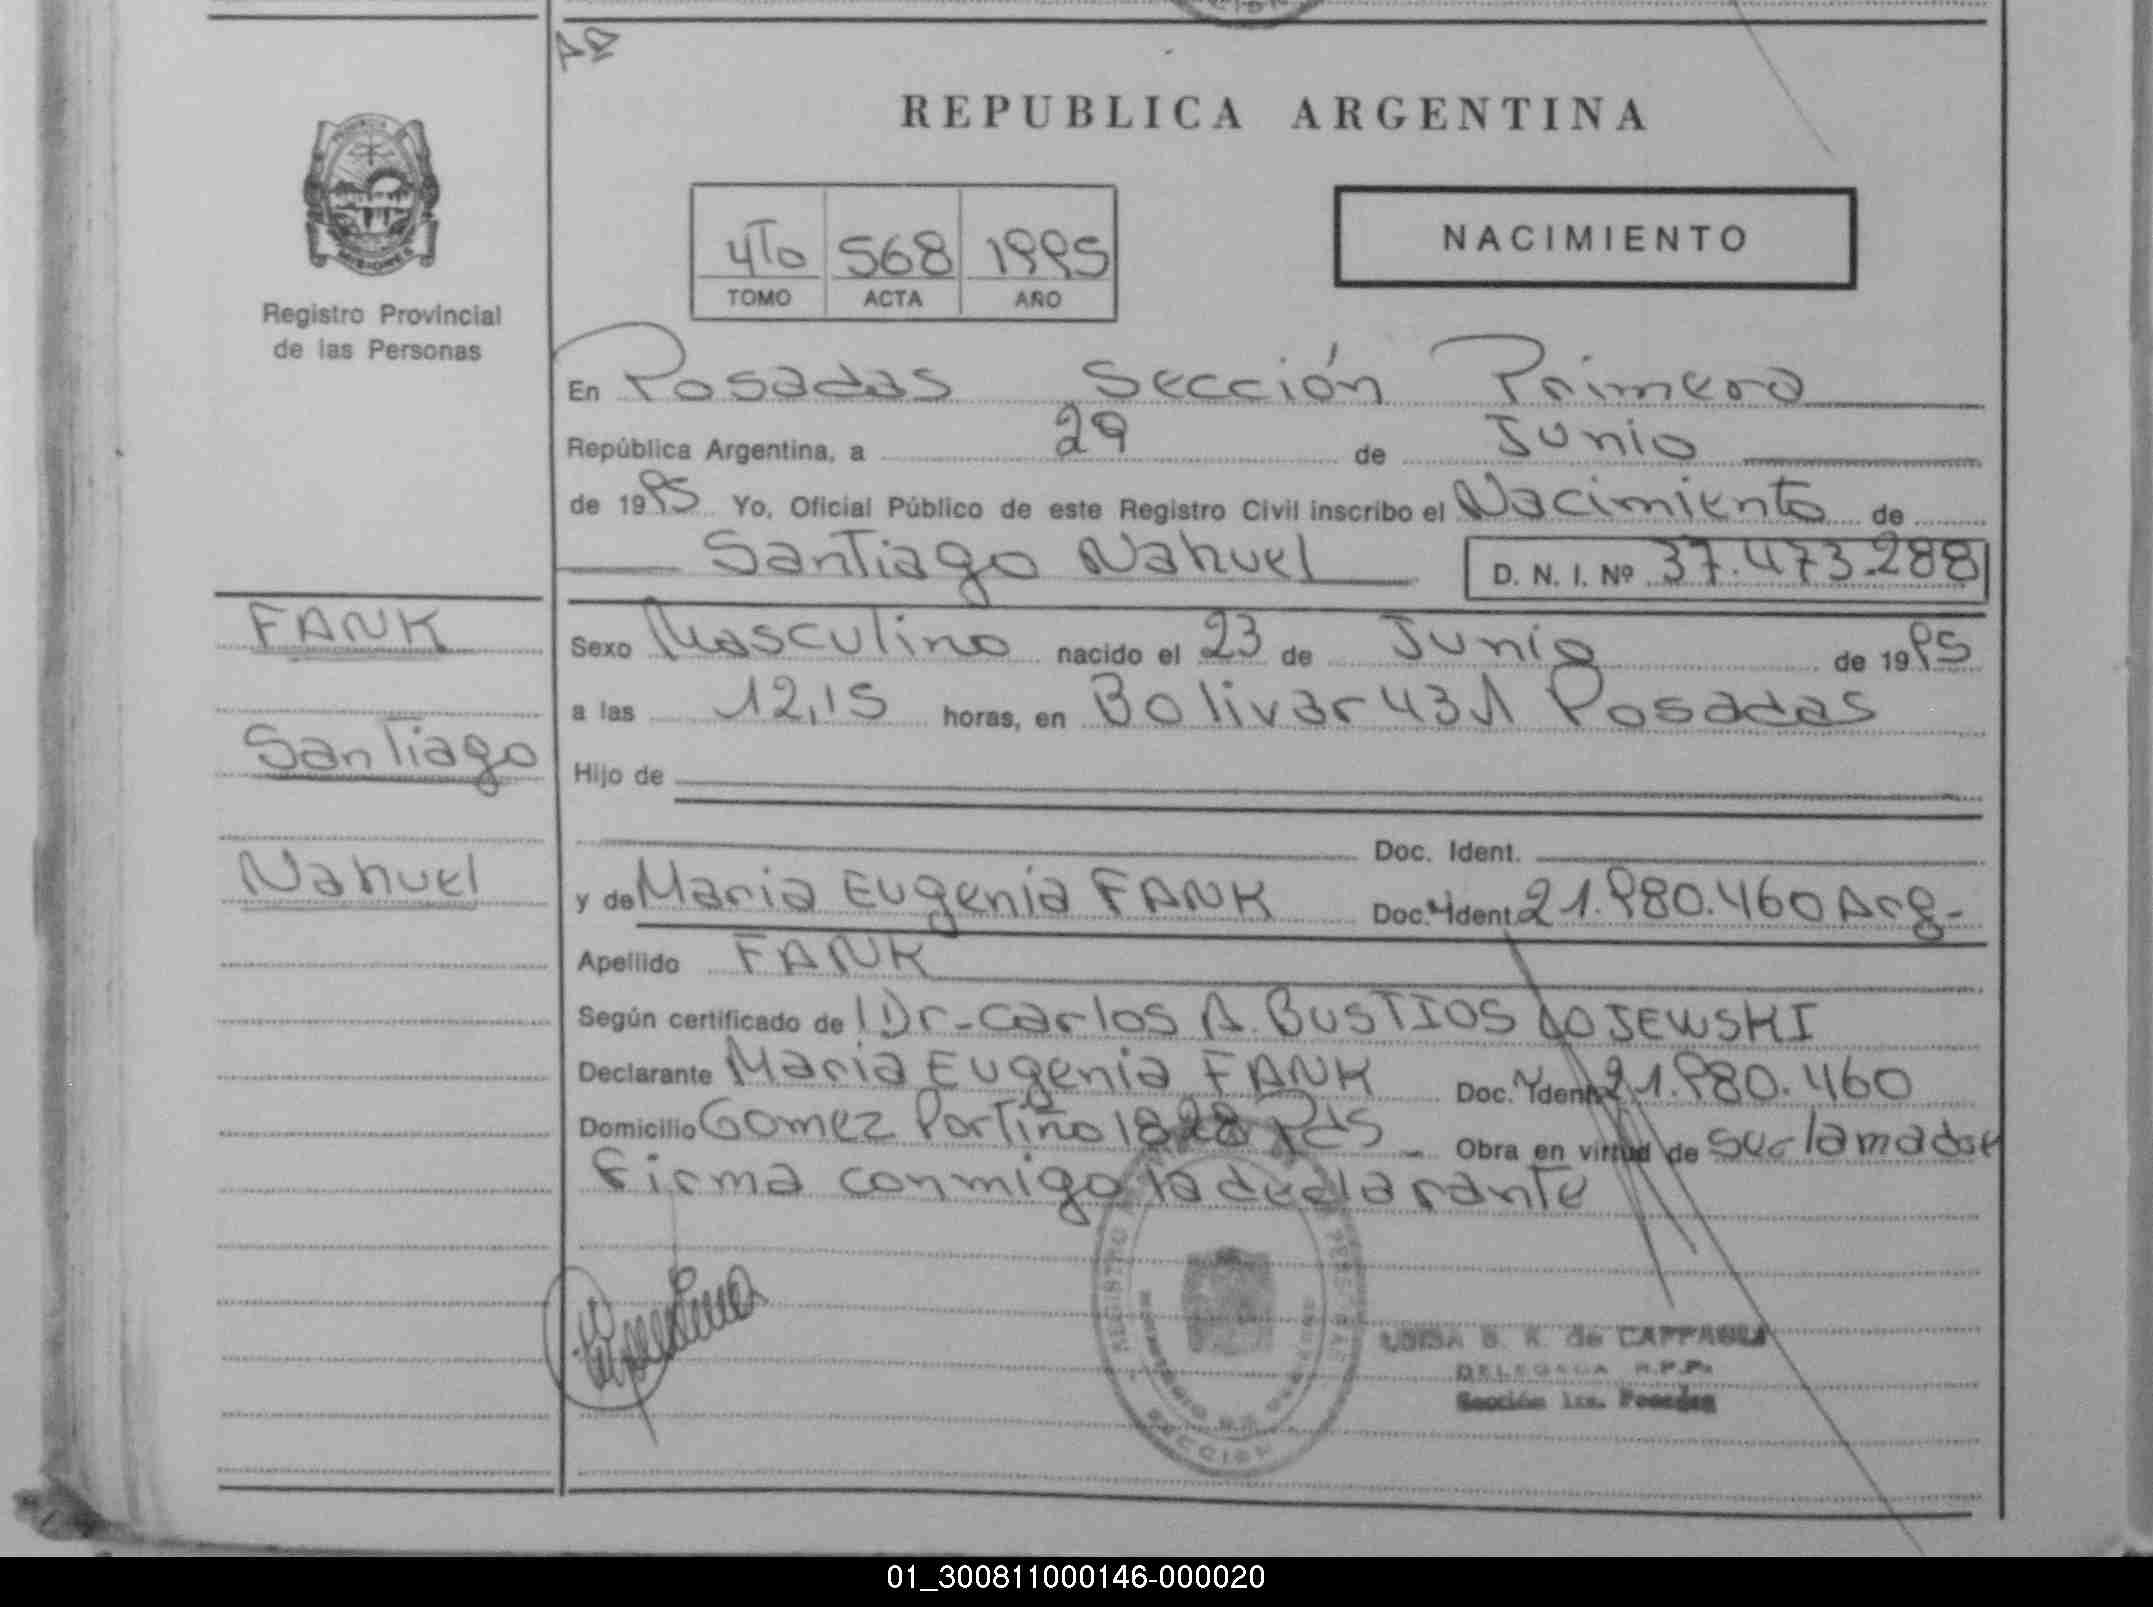 REPUBLICA ARGENTINA
Registro Provincial
de las Personas
4To 568 1995
TOMO ACTA AÑO
NACIMIENTO
En Posadas Sección Primera
República Argentina, a 29 de Junio
de 1995 Yo, Oficial Público de este Registro Civil inscribo el Nacimiento de
Santiago Nahuel D. N. I. Nº 37.473.288
FANK
Santiago
Nahuel
Sexo Masculino nacido el 23 de Junio de 1995
a las 12,15 horas, en Bolivar 431 Posadas
Hijo de
Doc. Ident.
y de Maria Eugenia FANK Doc. Ident 21.980.460 Arg-
Apellido FANK
Según certificado de Dr-Carlos A. BUSTIOS
Declarante Maria Eugenia FANK Doc. Ident 21.980.460
Domicilio Gomez Portiño 1828 Pds Obra en virtud de
Firma conmigo la declarante
REGISTRO
SECCION
de CAFFARELLI
DELEGADA R.P.P.
Sección 1ra. Posadas
01_300811000146-000020